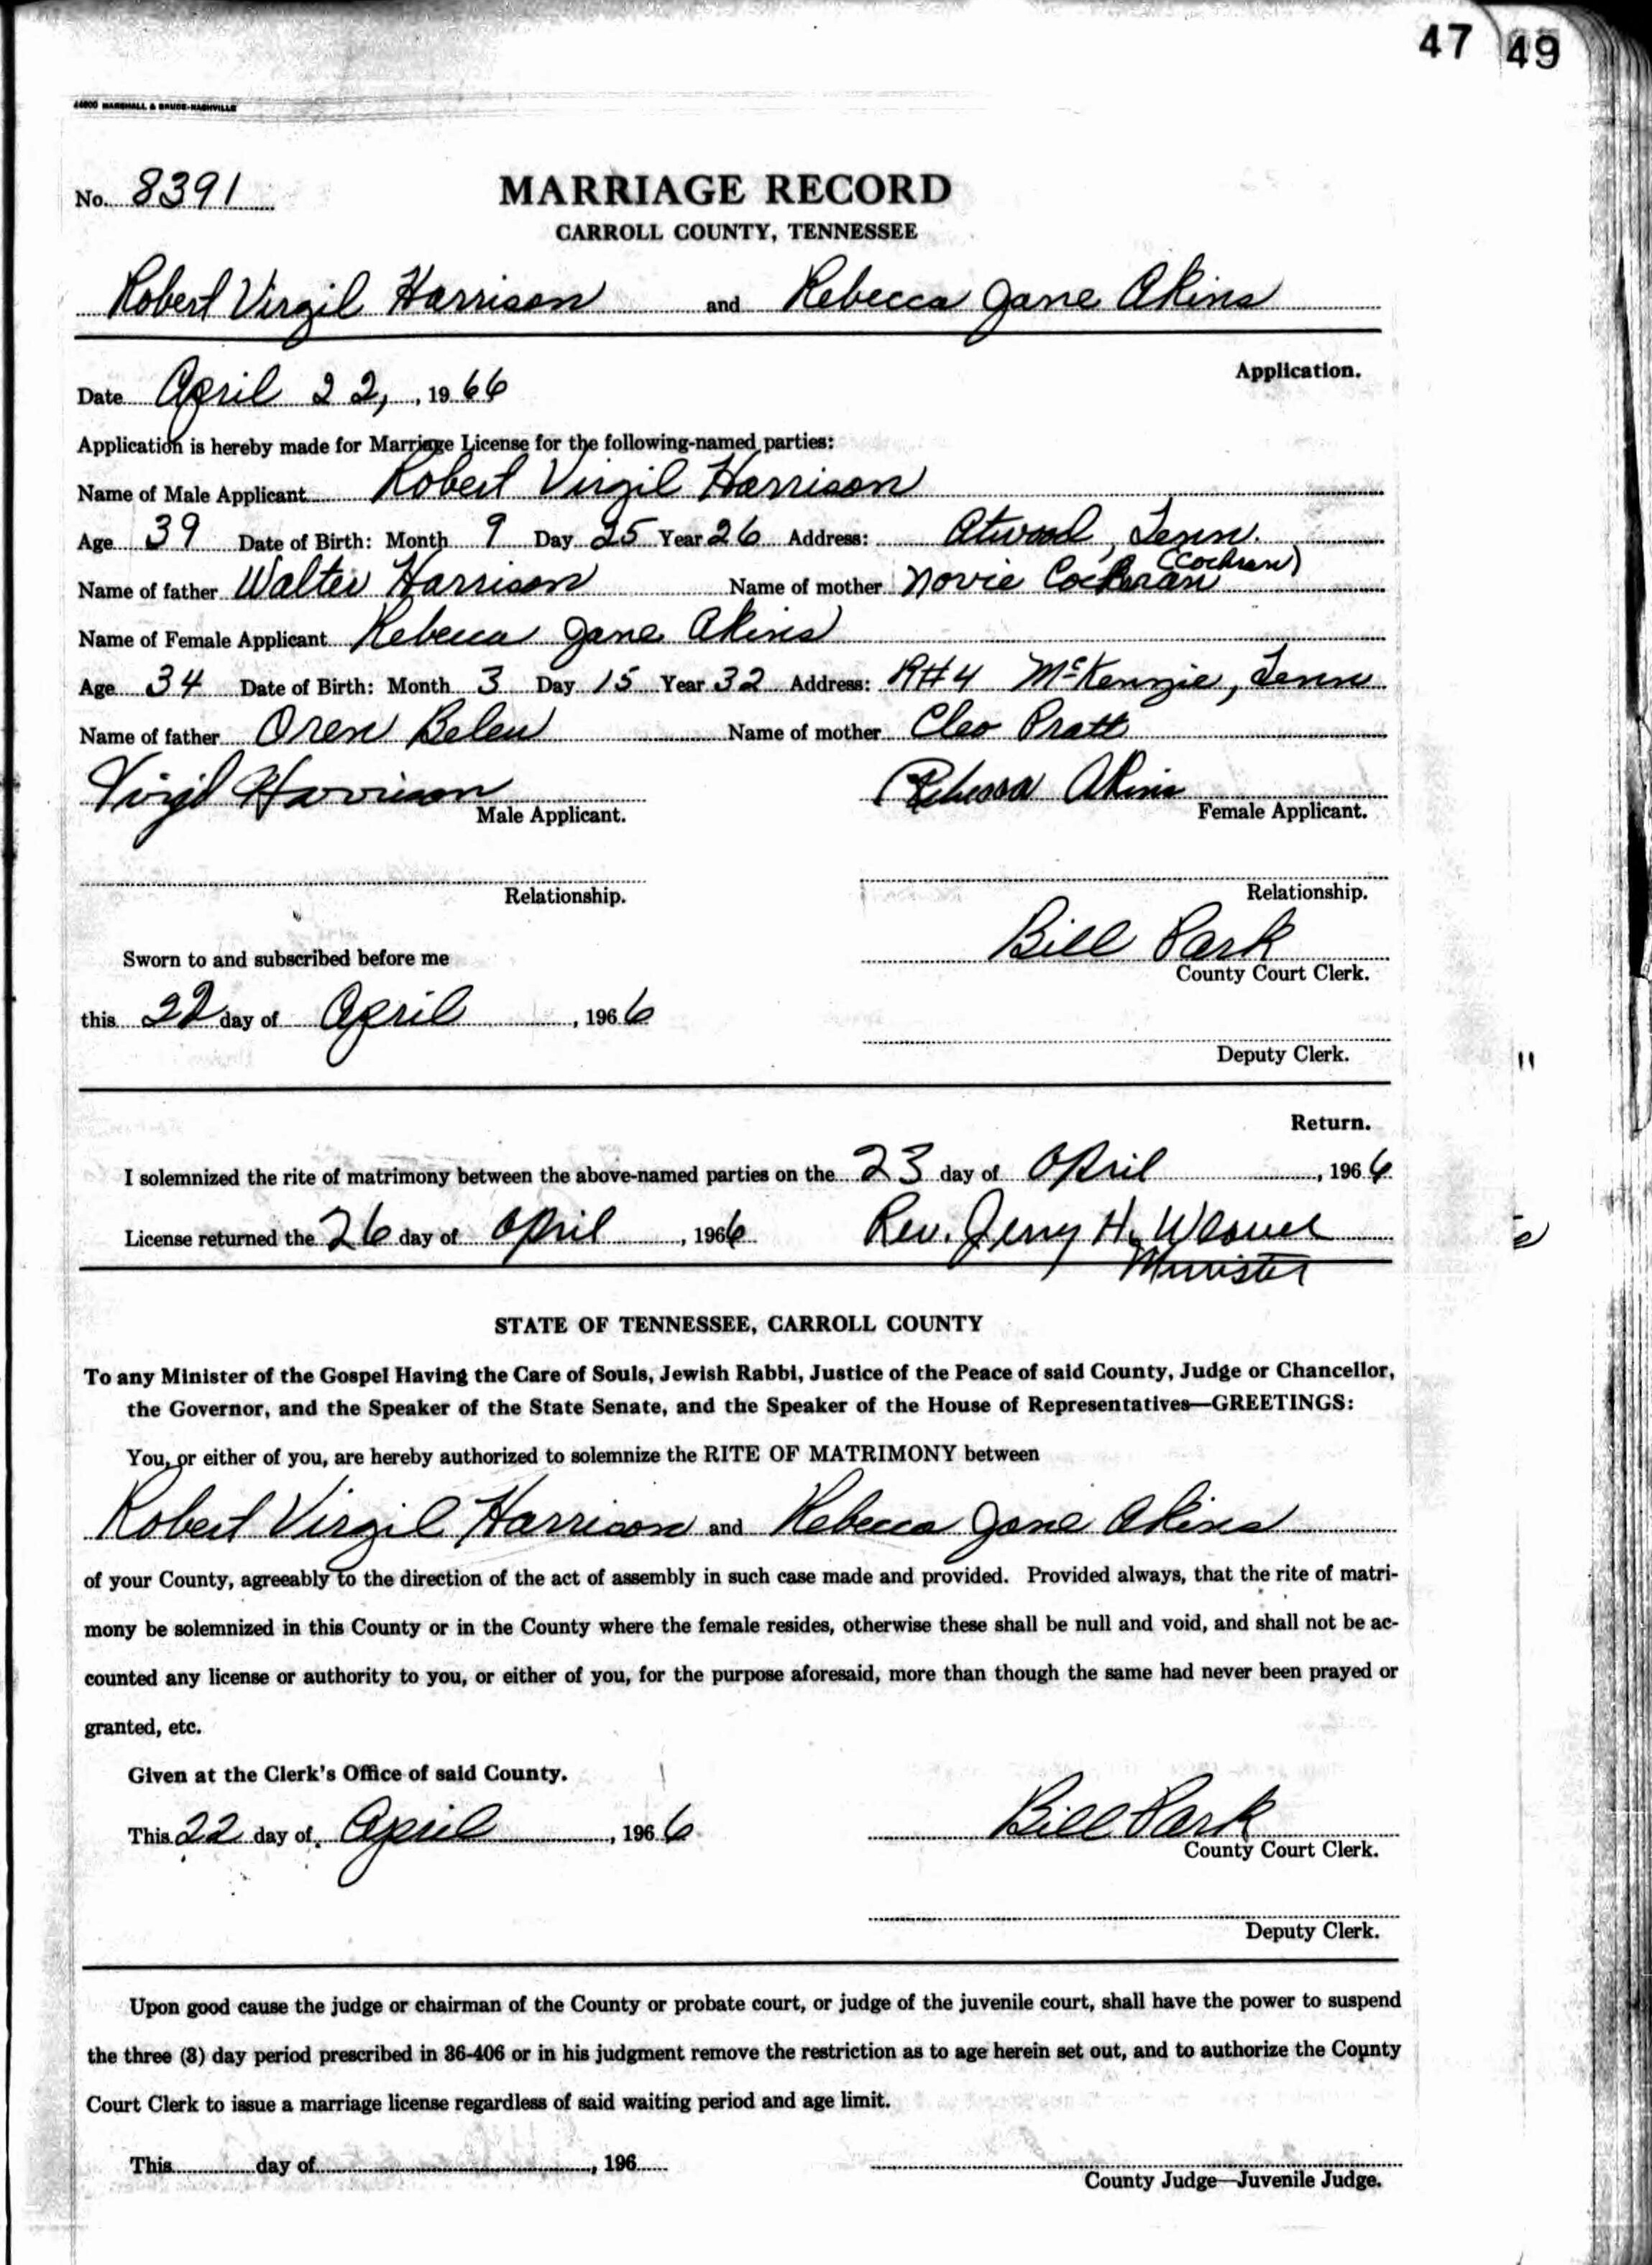 47 49
44600 MARSHALL & BRUCE-NASHVILLE
No. 8391
MARRIAGE RECORD
CARROLL COUNTY, TENNESSEE
Robert Virgil Harrison and Rebecca Jane Akins
Application.
Date April 22, , 1966
Application is hereby made for Marriage License for the following-named parties:
Name of Male Applicant Robert Virgil Harrison
Age 39 Date of Birth: Month 9 Day 25 Year 26 Address: Atwood, Tenn.
(Cochran)
Name of father Walter Harrison Name of mother Novie Cochran
Name of Female Applicant Rebecca Jane Akins
Age 34 Date of Birth: Month 3 Day 15 Year 32 Address: R#4 McKenzie, Tenn
Name of father Oren Belew Name of mother Cleo Pratt
Virgil Harrison Rebecca Akins
Male Applicant. Female Applicant.
Relationship. Relationship.
Bill Park
Sworn to and subscribed before me
County Court Clerk.
this 22 day of April , 1966
Deputy Clerk.
Return.
I solemnized the rite of matrimony between the above-named parties on the 23 day of April , 1966
License returned the 26 day of April , 1966 Rev. Jerry H. Weaver
Minister
STATE OF TENNESSEE, CARROLL COUNTY
To any Minister of the Gospel Having the Care of Souls, Jewish Rabbi, Justice of the Peace of said County, Judge or Chancellor,
the Governor, and the Speaker of the State Senate, and the Speaker of the House of Representatives—GREETINGS:
You, or either of you, are hereby authorized to solemnize the RITE OF MATRIMONY between
Robert Virgil Harrison and Rebecca Jane Akins
of your County, agreeably to the direction of the act of assembly in such case made and provided. Provided always, that the rite of matri-
mony be solemnized in this County or in the County where the female resides, otherwise these shall be null and void, and shall not be ac-
counted any license or authority to you, or either of you, for the purpose aforesaid, more than though the same had never been prayed or
granted, etc.
Given at the Clerk's Office of said County.
This 22 day of April , 1966 Bill Park
County Court Clerk.
Deputy Clerk.
Upon good cause the judge or chairman of the County or probate court, or judge of the juvenile court, shall have the power to suspend
the three (3) day period prescribed in 36-406 or in his judgment remove the restriction as to age herein set out, and to authorize the County
Court Clerk to issue a marriage license regardless of said waiting period and age limit.
This day of , 196
County Judge—Juvenile Judge.